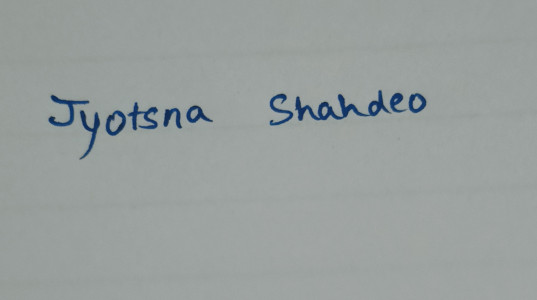 Jyotsna Shahdeo